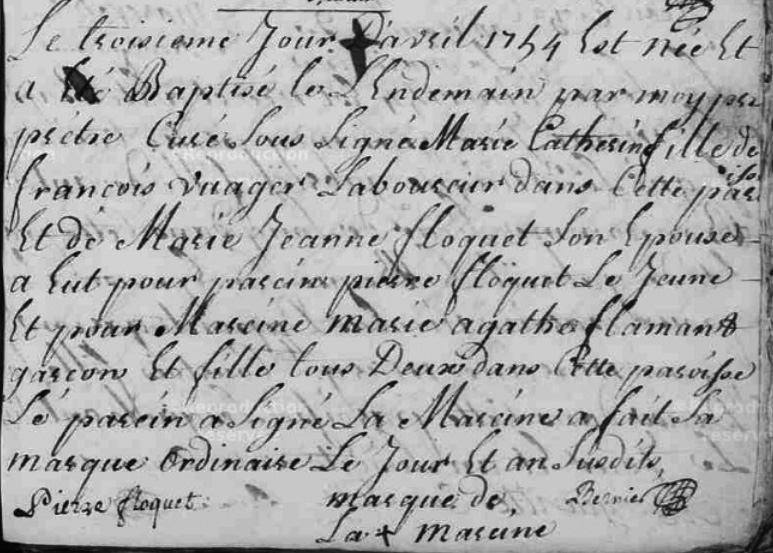 Le troisieme Jour D'avril 1754 Est née Et
a Eté Baptisé le L'Endemain par moy
prêtre Curé Sous Signé Marie Catherine fille de
francois vuager Laboureur dans Cette paroisse
Et de Marie Jeanne floquet Son Epouse
a Eut pour parein pierre floquet Le Jeune
Et pour Mareine marie agathe flamant
garcon Et fille tous Deux dans Cette paroisse
Le parein a Signé La Mareine a fait Sa
marque ordinaire Le Jour Et an Susdits
Pierre floquet marque de Bernier
La + mareine